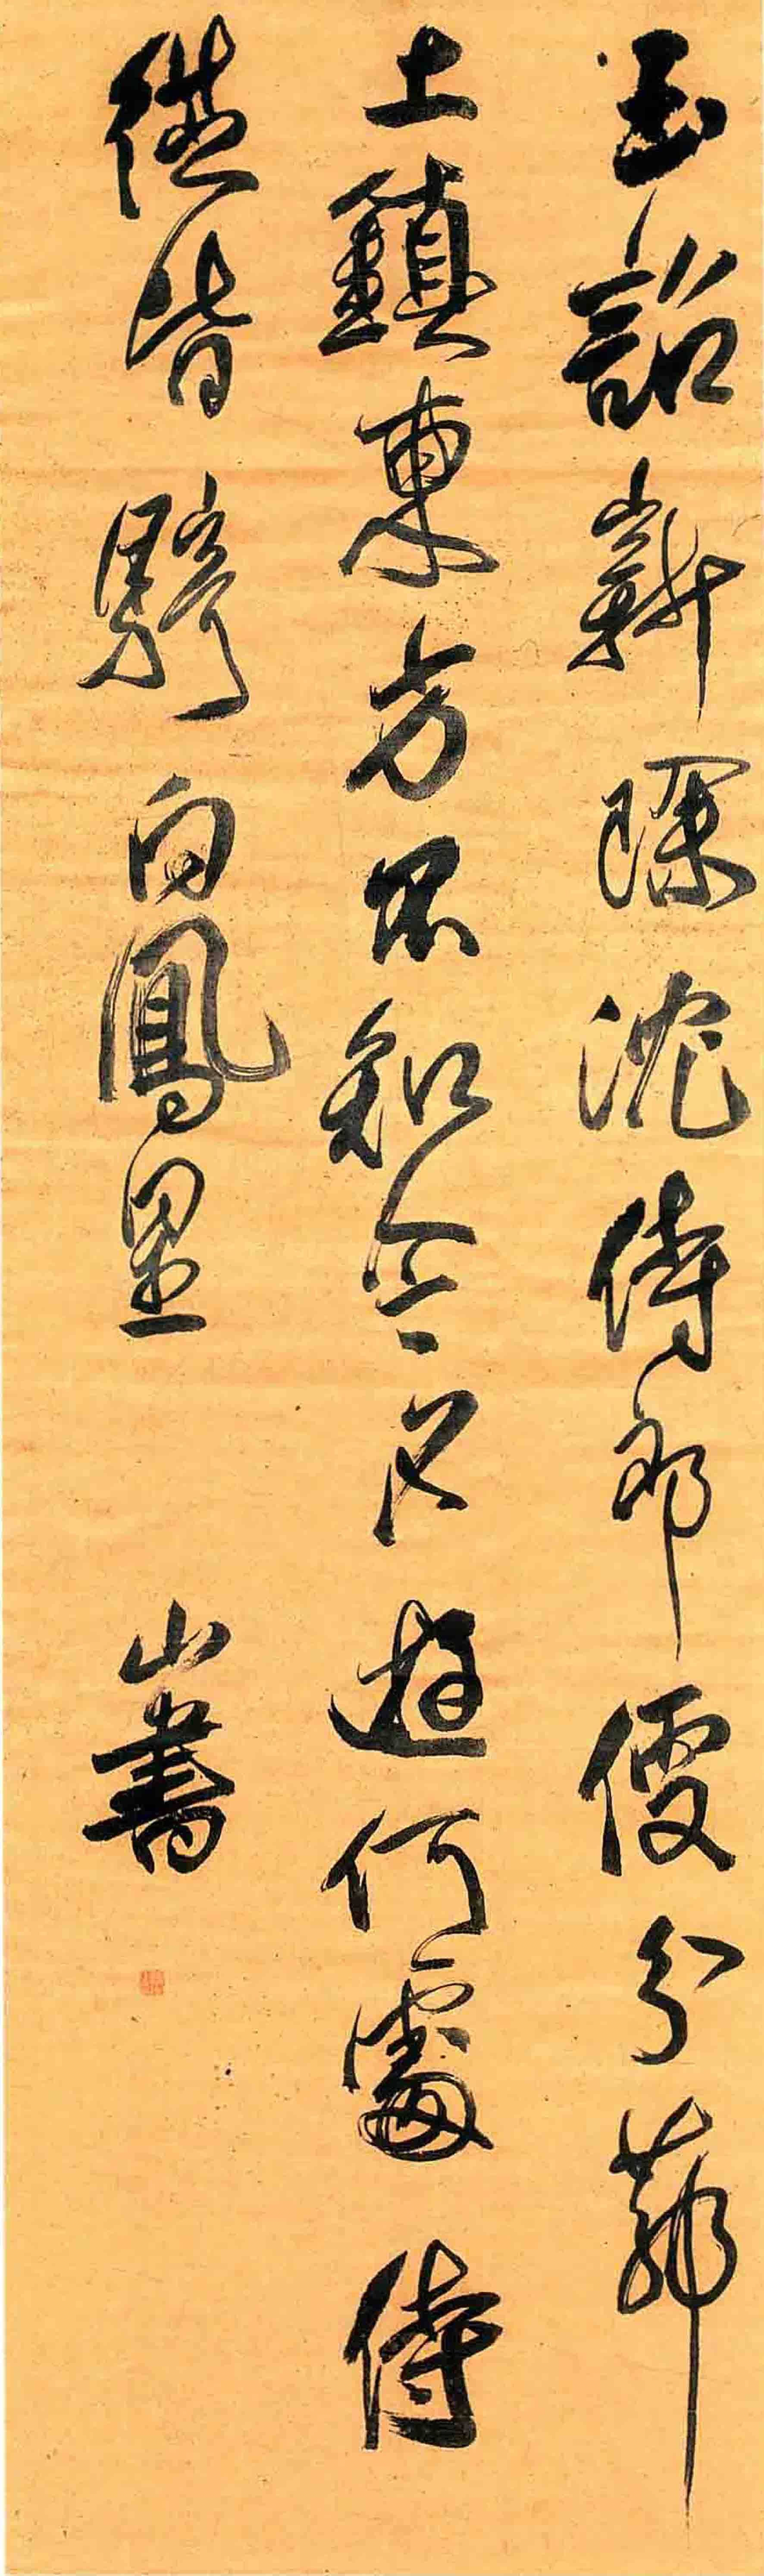 玉詔新除沈侍郎便分茅
土鎮東方不知今夕遊何處侍
從皆騎白鳳皇
山書